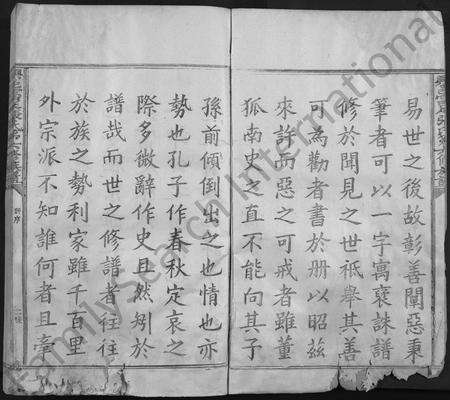 易世之後故彭善闡惡秉
筆者可以一字寓褒誅譜
修於聞見之世祗舉其善
可為勸者書於册以昭茲
來許而惡之可戒者雖董
狐南史之直不能向其子
孫前傾倒出之也情也亦
勢也孔子作春秋定哀之
際多微辭作史且然矧於
譜哉而世之修譜者往往
於族之勢利家雖千百里
外宗派不知誰何者且牽
FamilySearch International